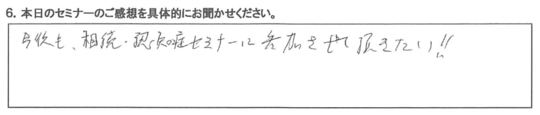 6. 本日のセミナーのご感想を具体的にお聞かせください。
今後も、相続・認知症セミナーに参加させて頂きたい!!